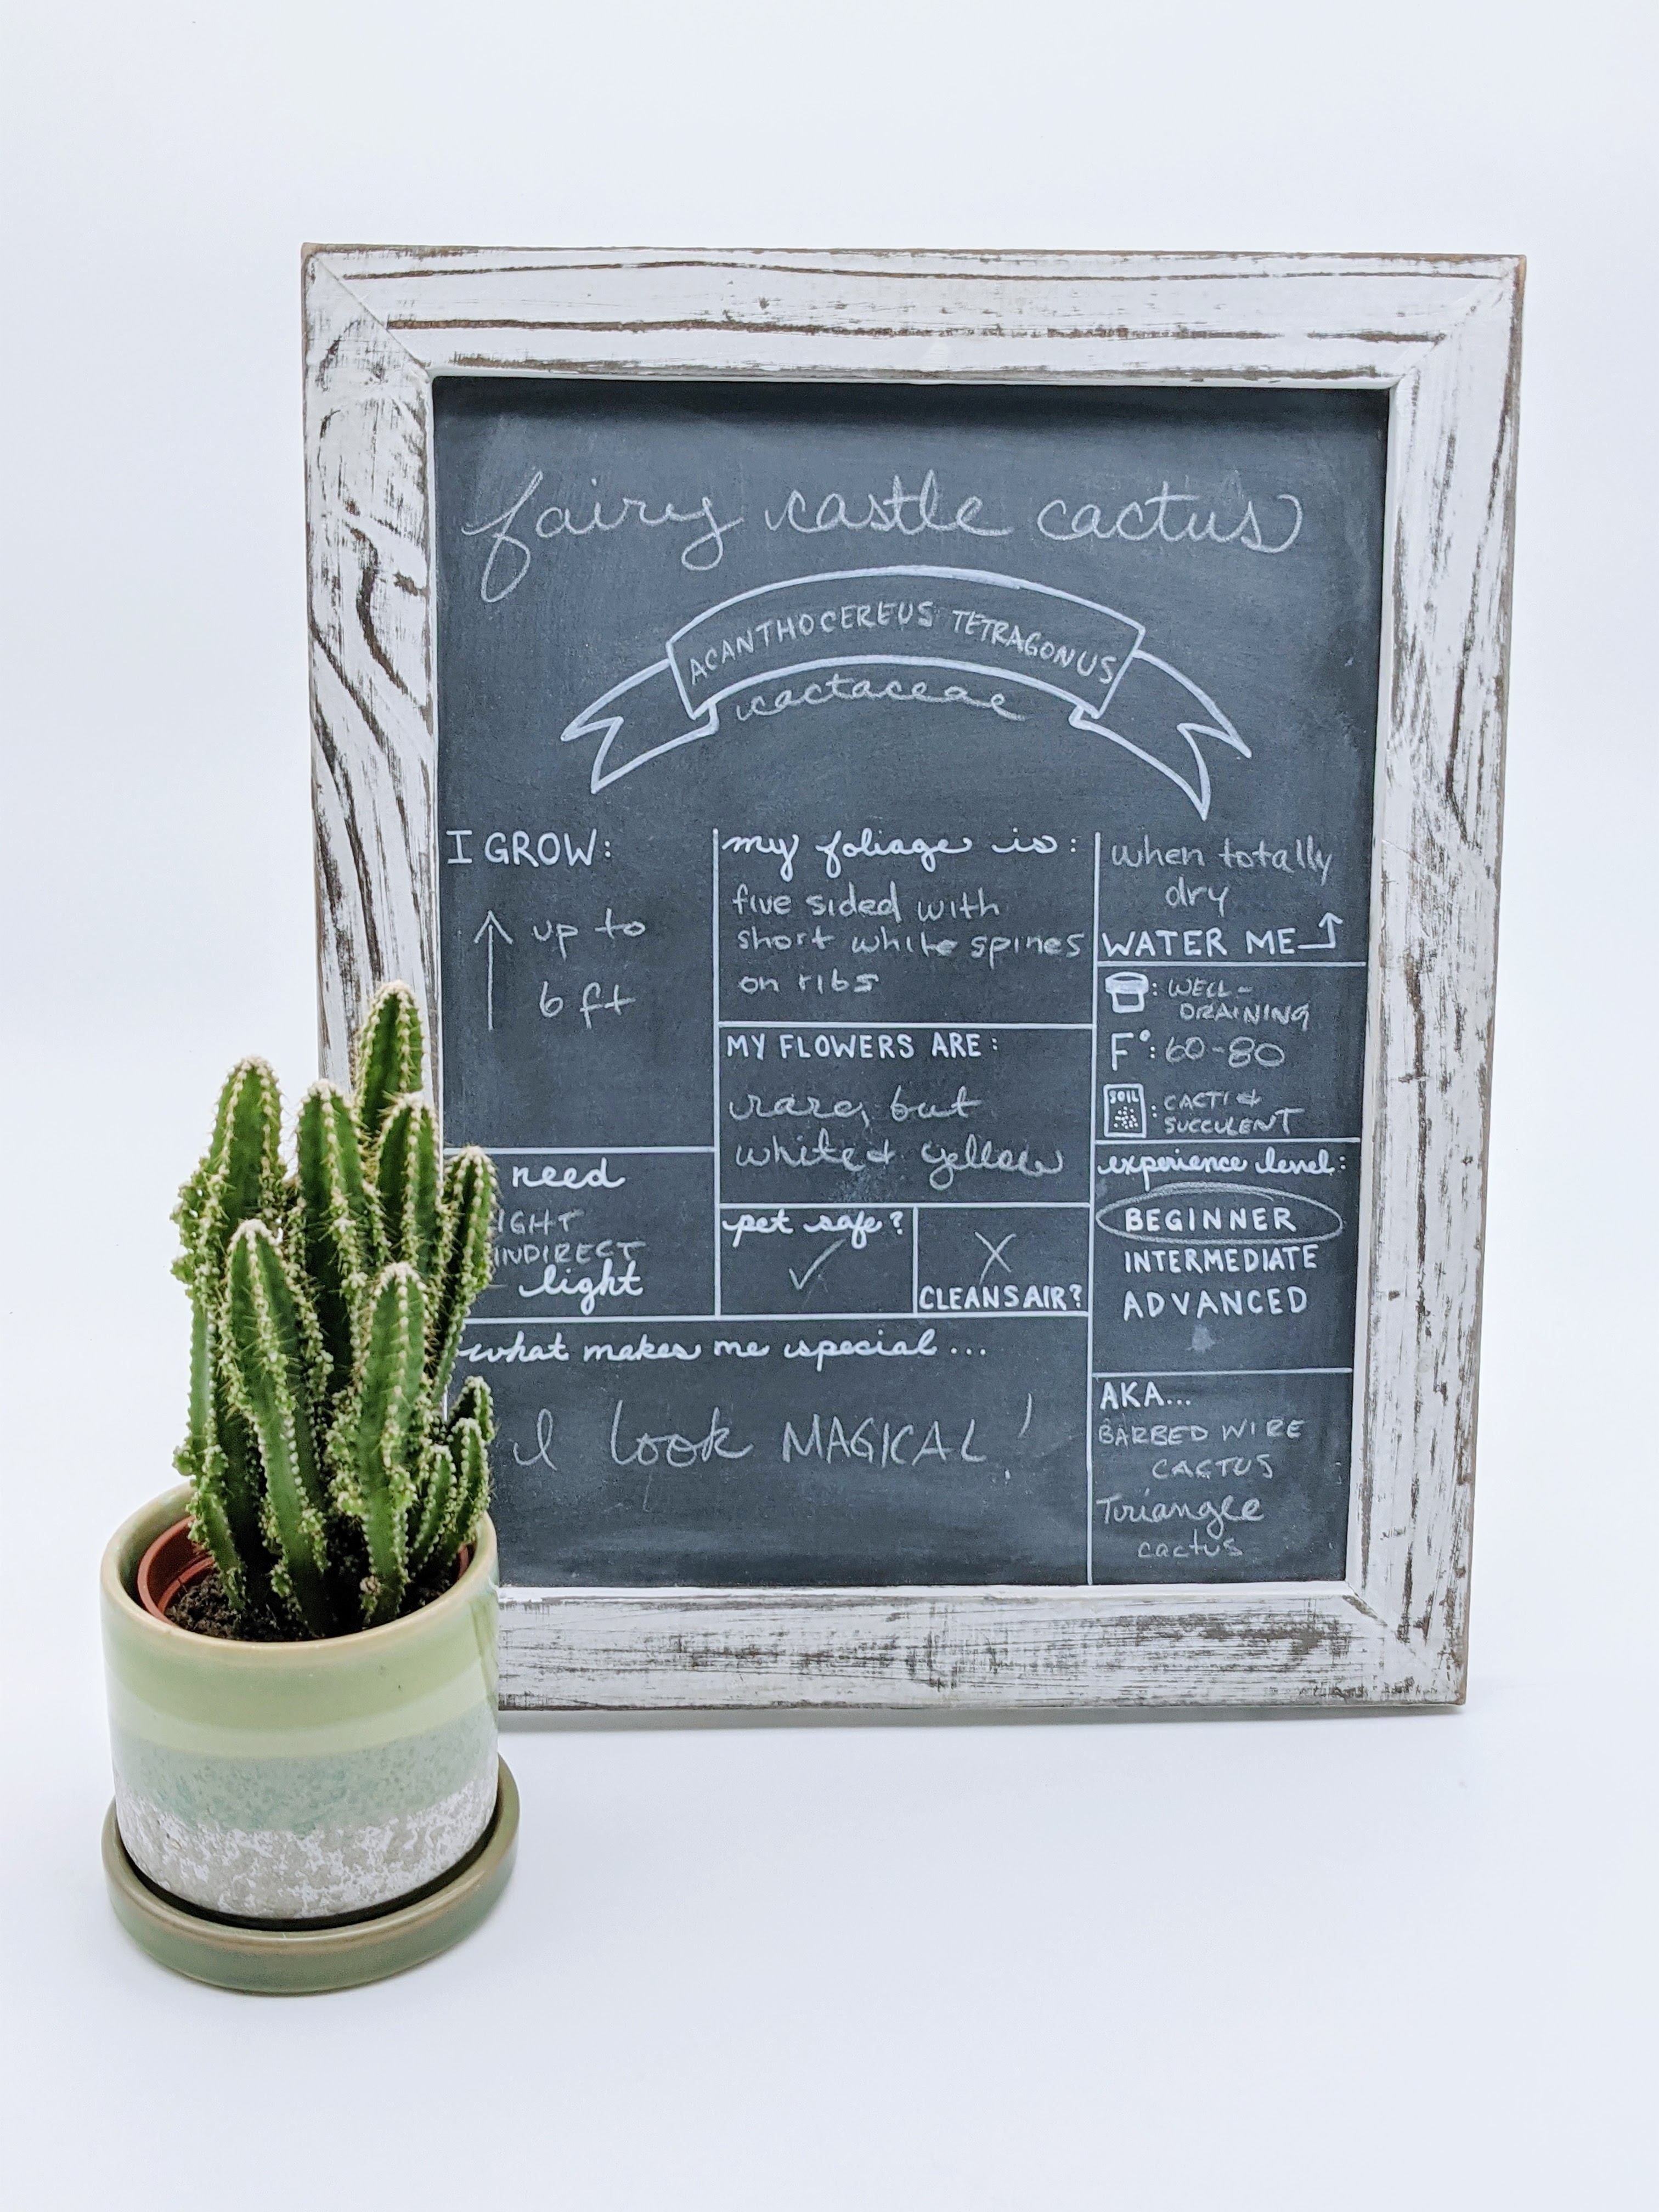 fairy castle cactus
ACANTHOCEREUS TETRAGONUS
cactaceae
I GROW:
up to
6 ft
need
INDIRECT
light
my foliage is:
five sided with
short white spines
on ribs
MY FLOWERS ARE:
rare, but
white & yellow
pet safe?
CLEANS AIR?
what makes me special...
I look MAGICAL!
when totally
dry
WATER ME
: WELL-
DRAINING
F°: 60-80
SOIL : CACTI &
SUCCULENT
experience level:
BEGINNER
INTERMEDIATE
ADVANCED
AKA...
BARBED WIRE
CACTUS
Triangle
cactus